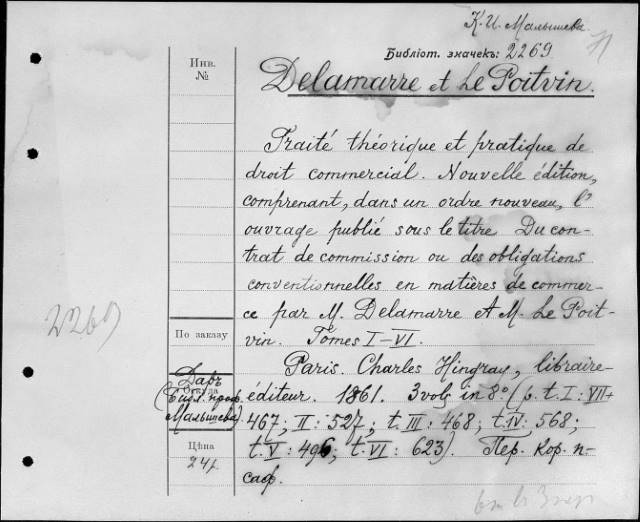 К. И. Малышева
71
Библіот. значекъ: 2269
Инв.
№
Delamarre et Le Poitvin.
Traité théorique et pratique de
droit commercial. Nouvelle édition,
comprenant, dans un ordre nouveau, l'
ouvrage publié sous le titre Du con-
trat de commission ou des obligations
conventionnelles en matières de commer-
ce par M. Delamarre et M. Le Poit-
vin. Tomes I-VI.
2269
По заказу
Paris. Charles Hingray, libraire-
Даръ
Откуда
éditeur. 1861. 3 vols in 8º. (p. t. I: VII+
(Библ. проф.
Малышева).
467; II: 527; t. III: 468; t. IV: 568;
t. V: 496; t. VI: 623). Пер. кор. п-
саф.
Цѣна
24 р.